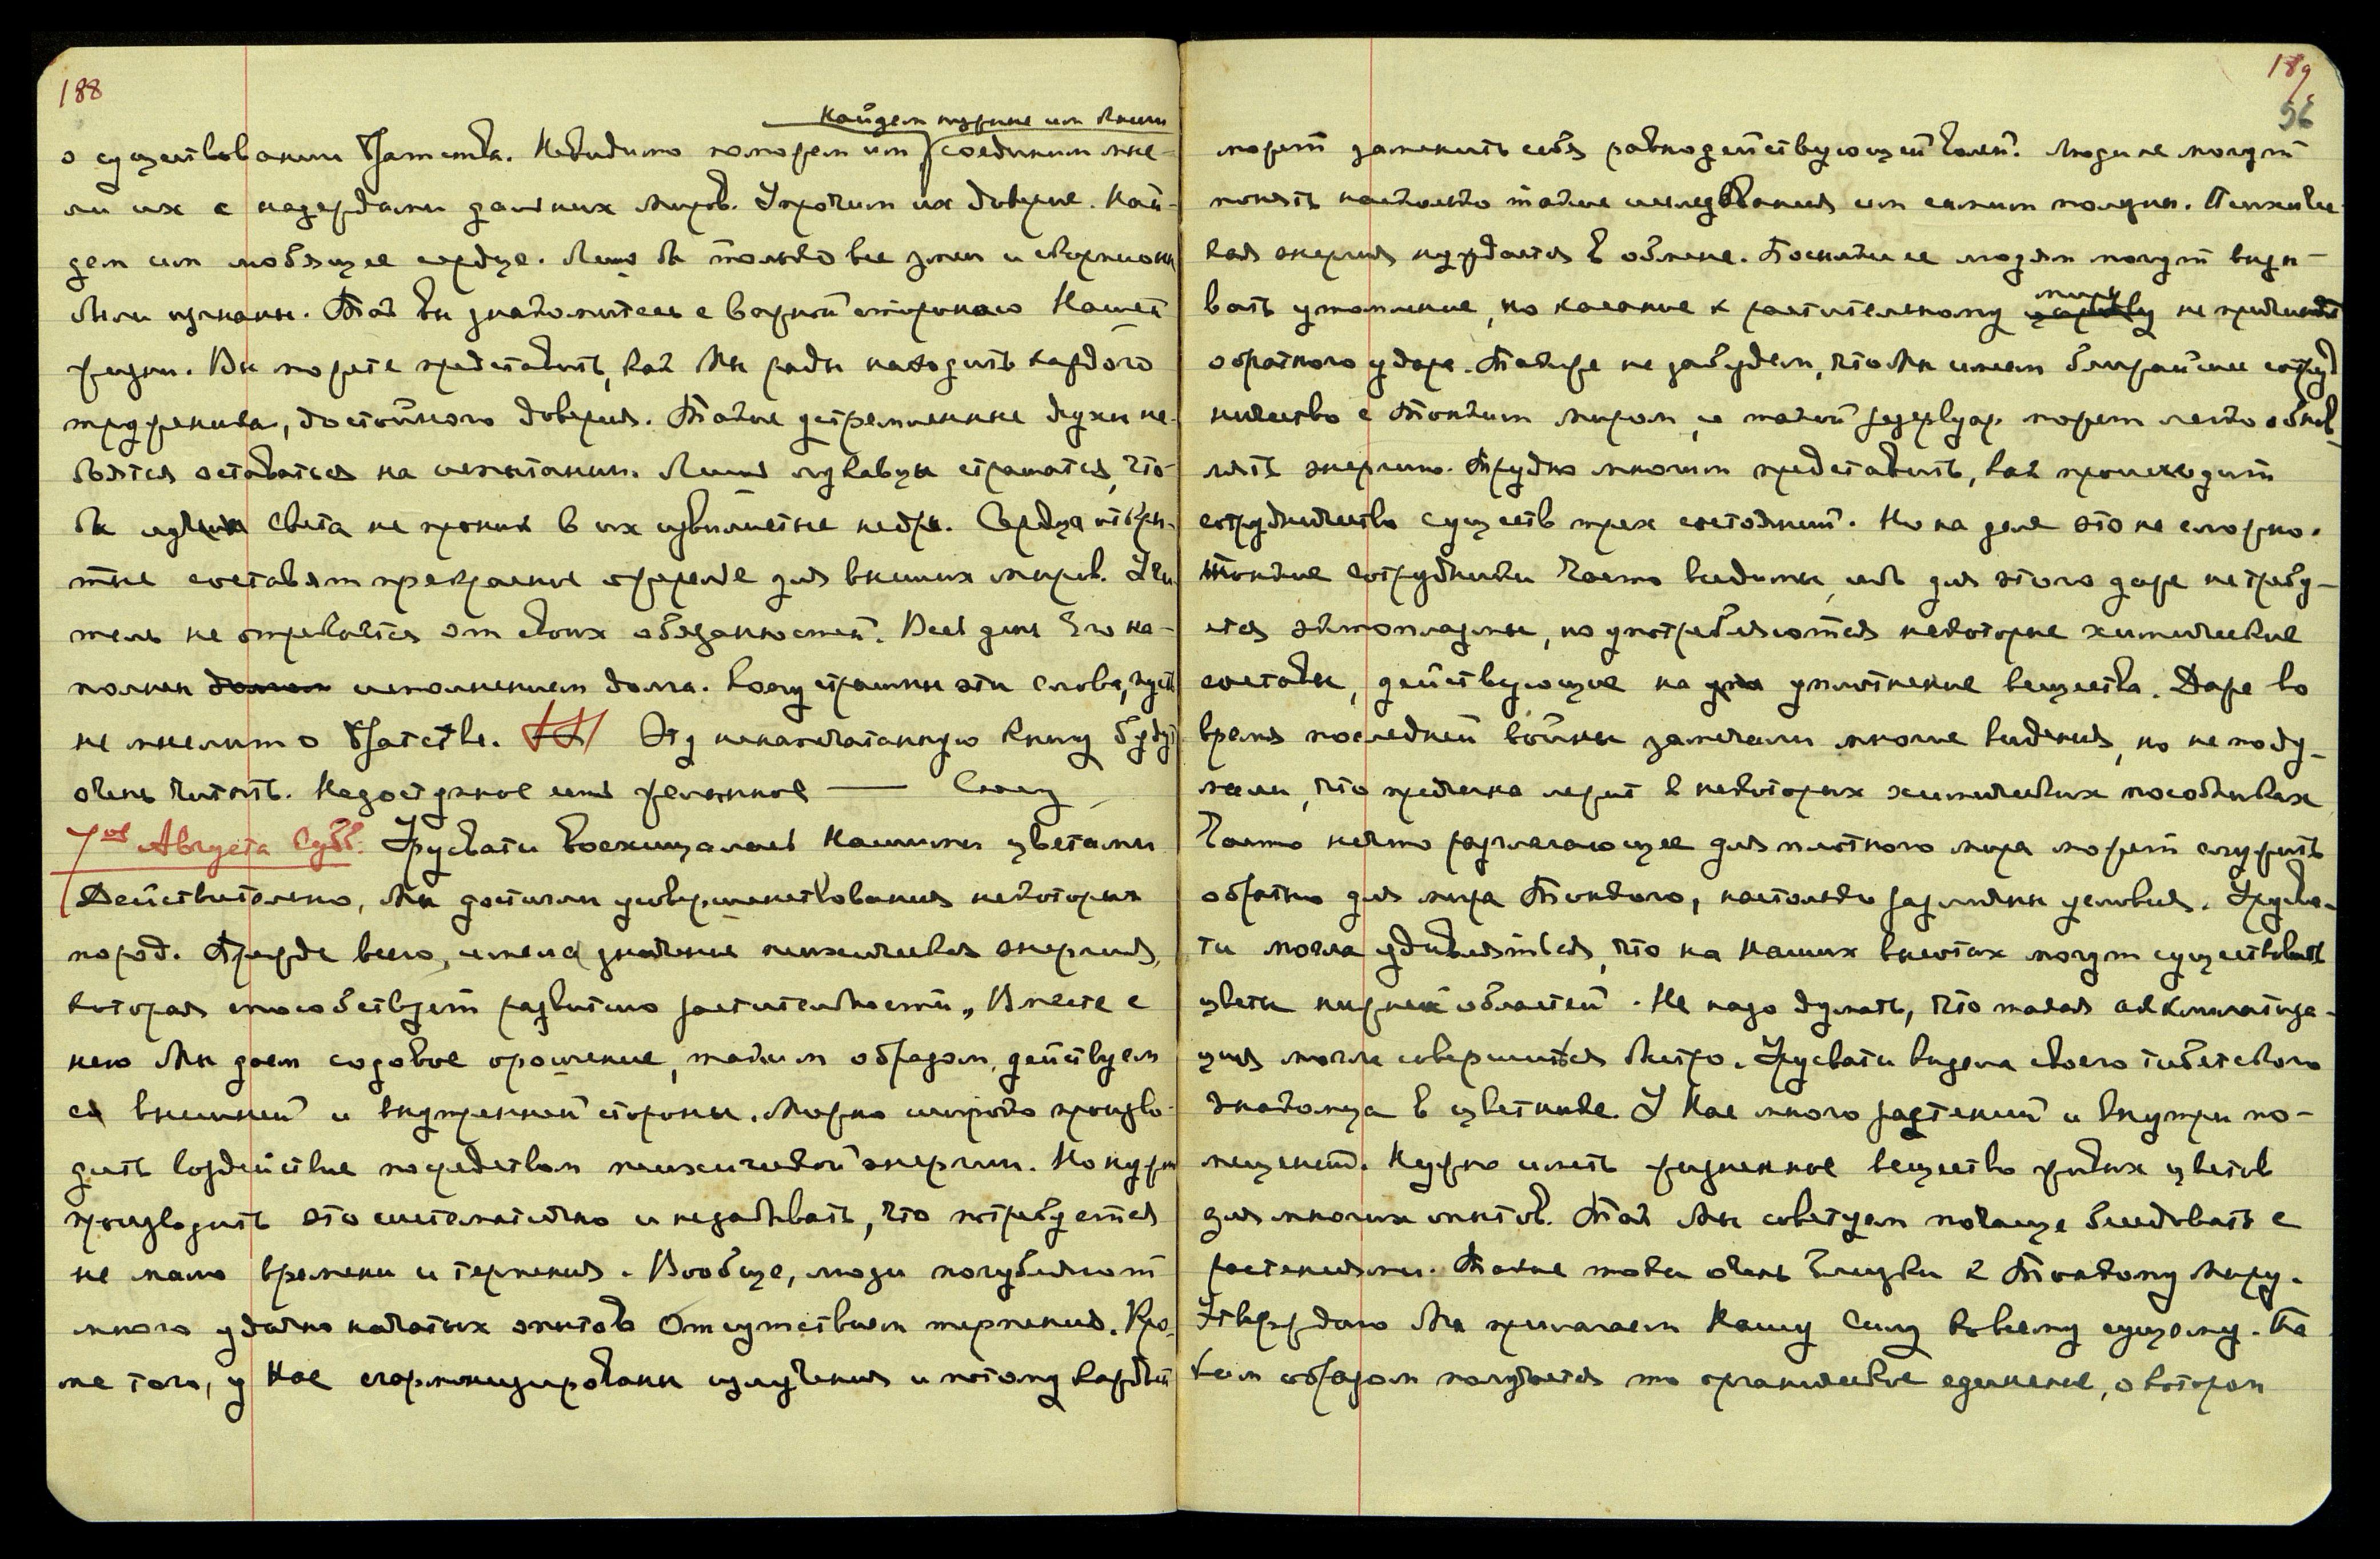 188
Найдем нужные им книги
о существовании Братства. Невидимо поможем им соединим мыс-
ли их с надеждами дальних миров. Упрочим их доверие. Най-
дем им любящее сердце. Лишь бы только все эти и
были изгнаны. Так вы знакомитесь с важной стороною Нашей
жизни. Вы можете представить, как Мы рады находить каждого
труженика, достойного доверия. Такие устремленные духи не
боятся оставаться на испытании. Лишь лукавцы страшатся, что-
бы лучи Света не проник в их извилистые недра. Сердца откры-
тые составят прекрасное ожерелье для высших миров. Учи
тель не отрекается от своих обязанностей. Весь день Его на-
полнен исполнением долга. Кому страшны эти слова, пусть
не мыслит о Братстве. Эту ненапечатанную книгу будут
очень читать. Недоступное им желанное — Скажу
7ое Августа Субб. Урусвати восхищалась Нашими цветами
Действительно, Мы достигли усовершенствования некоторых
пород. Прежде всего, имела значение психическая энергия,
которая способствует развитию растительности. Вместе с
нею Мы даем содовое орошение, таким образом, действуем
с внешней и внутренней стороны. Можно широко произво-
дить воздействие посредством психической энергии. Но нужно
производить это систематично и не забывать, что потребуется
не мало времени и терпения. Вообще, люди погубляют
много удачно начатых опытов отсутствием терпения. Кро-
ме того, у Нас сгармонизированы излучения и потому каждый
189
96
может заменить себя равнодействующей волей. Люди не могут
понять насколько такие исследования им самим полезны. Психичес-
кая энергия нуждается в обмене. Посылки ее людям могут вызы-
вать утомление, но касание к растительному миру не причинит
обратного удара. Также не забудем, что Мы имеем ближайшее сотруд
ничество с Тонким миром, и такой резервуар может легко обнов
лять энергию. Трудно многим представить, как происходит
сотрудничество существ трех состояний. Но на деле это не сложно.
Тонкие сотрудники часто видимы, ибо для этого даже не требу-
ется эктоплазмы, но употребляются некоторые химические
составы, действующие на уплотнение вещества. Даже во
время последней войны замечали многие видения, но не поду-
мали, что причина лежит в некоторых химических пособниках
Часто нечто разлагающее для плотного мира может служить
обратно для мира Тонкого, настолько различны условия. Урусва-
ти могла удивляться, что на Наших высотах могут существовать
цветы нижней областей. Не надо думать, что такая акклиматиза-
ция могла совершиться быстро. Урусвати видела своего тибетского
знакомца в цветнике. У Нас много растений и внутри по-
мещений. Нужно иметь жизненное вещество живых цветов
для многих опытов. Так Мы советуем почаще беседовать с
растениями. Такие токи очень близки к Тонкому Миру.
Утверждаю Мы прилагаем Нашу Силу ко всему сущему. Та
ким образом получается то органическое единение, о котором